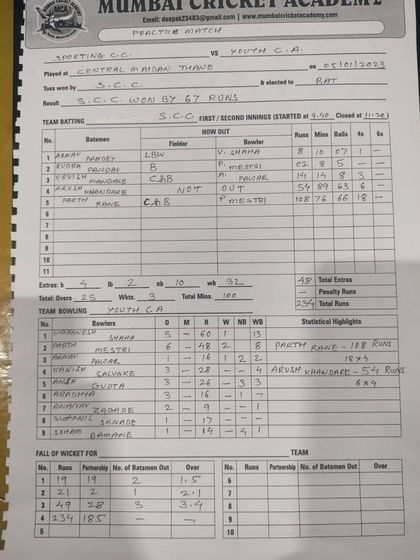 MUMBAI CRICKET ACADEMY
Email: deepak23483@gmail.com | www.mumbaicricketacademy.com
PRACTICE MATCH
SPORTING C.C. VS YOUTH C.A.
Played at CENTRAL MAIDAN THANE on 05/01/2023
Toss won by S.C.C. & elected to BAT
Result S.C.C. WON BY 67 RUNS
TEAM BATTING S.C.C FIRST / SECOND INNINGS (STARTED at 9.40 Closed at 11.20)
No. Batsmen HOW OUT Runs Mins Balls 4s 6s
Fielder Bowler
1 ARNAV PANDEY LBW V. SHAHA 8 10 07 1 -
2 RUDRA PANDAV B P. MESTRI 02 8 5 - -
3 URVISH MANGALE C&B A. PAWAR 14 14 8 3 -
4 ARUSH KHANDARE NOT OUT 54 89 63 6 -
5 PARTH RANE C&B P MESTRI 108 76 66 18 -
6
7
8
9
10
11
Extras: b 4 lb 2 nb 10 wb 32 48 Total Extras
- Penalty Runs
Total: Overs 25 Wkts. 3 Total Mins. 100 234 Total Runs
TEAM BOWLING YOUTH CA
No. Bowlers O M R W NB WB Statistical Highlights
1 SHAHA 5 - 60 1 13
2 PARTH MESTRI 6 - 48 2 8 PARTH RANE - 108 RUNS
3 ARNAV PAWAR 1 - 16 1 2 2 18x4
4 SALUNKE 3 - 28 - - 4 ARUSH KHANDARE - 54 RUNS
5 ANSH GUPTA 3 - 26 - 3 3 6x4
6 ARADHYA 3 - 16 - 1
7 ZAGADE 2 - 9 - - 1
8 SWAPNIL 1 - 17 - -
9 SOHAM BAMANE 1 - 14 - 4 1
FALL OF WICKET FOR TEAM
No. Runs Partnership No. of Batsmen Out Over No. Runs Partnership No. of Batsmen Out Over
1 19 19 2 1.5 6
2 21 2 1 2.1 7
3 49 28 3 3.4 8
4 234 185 - - 9
5 10